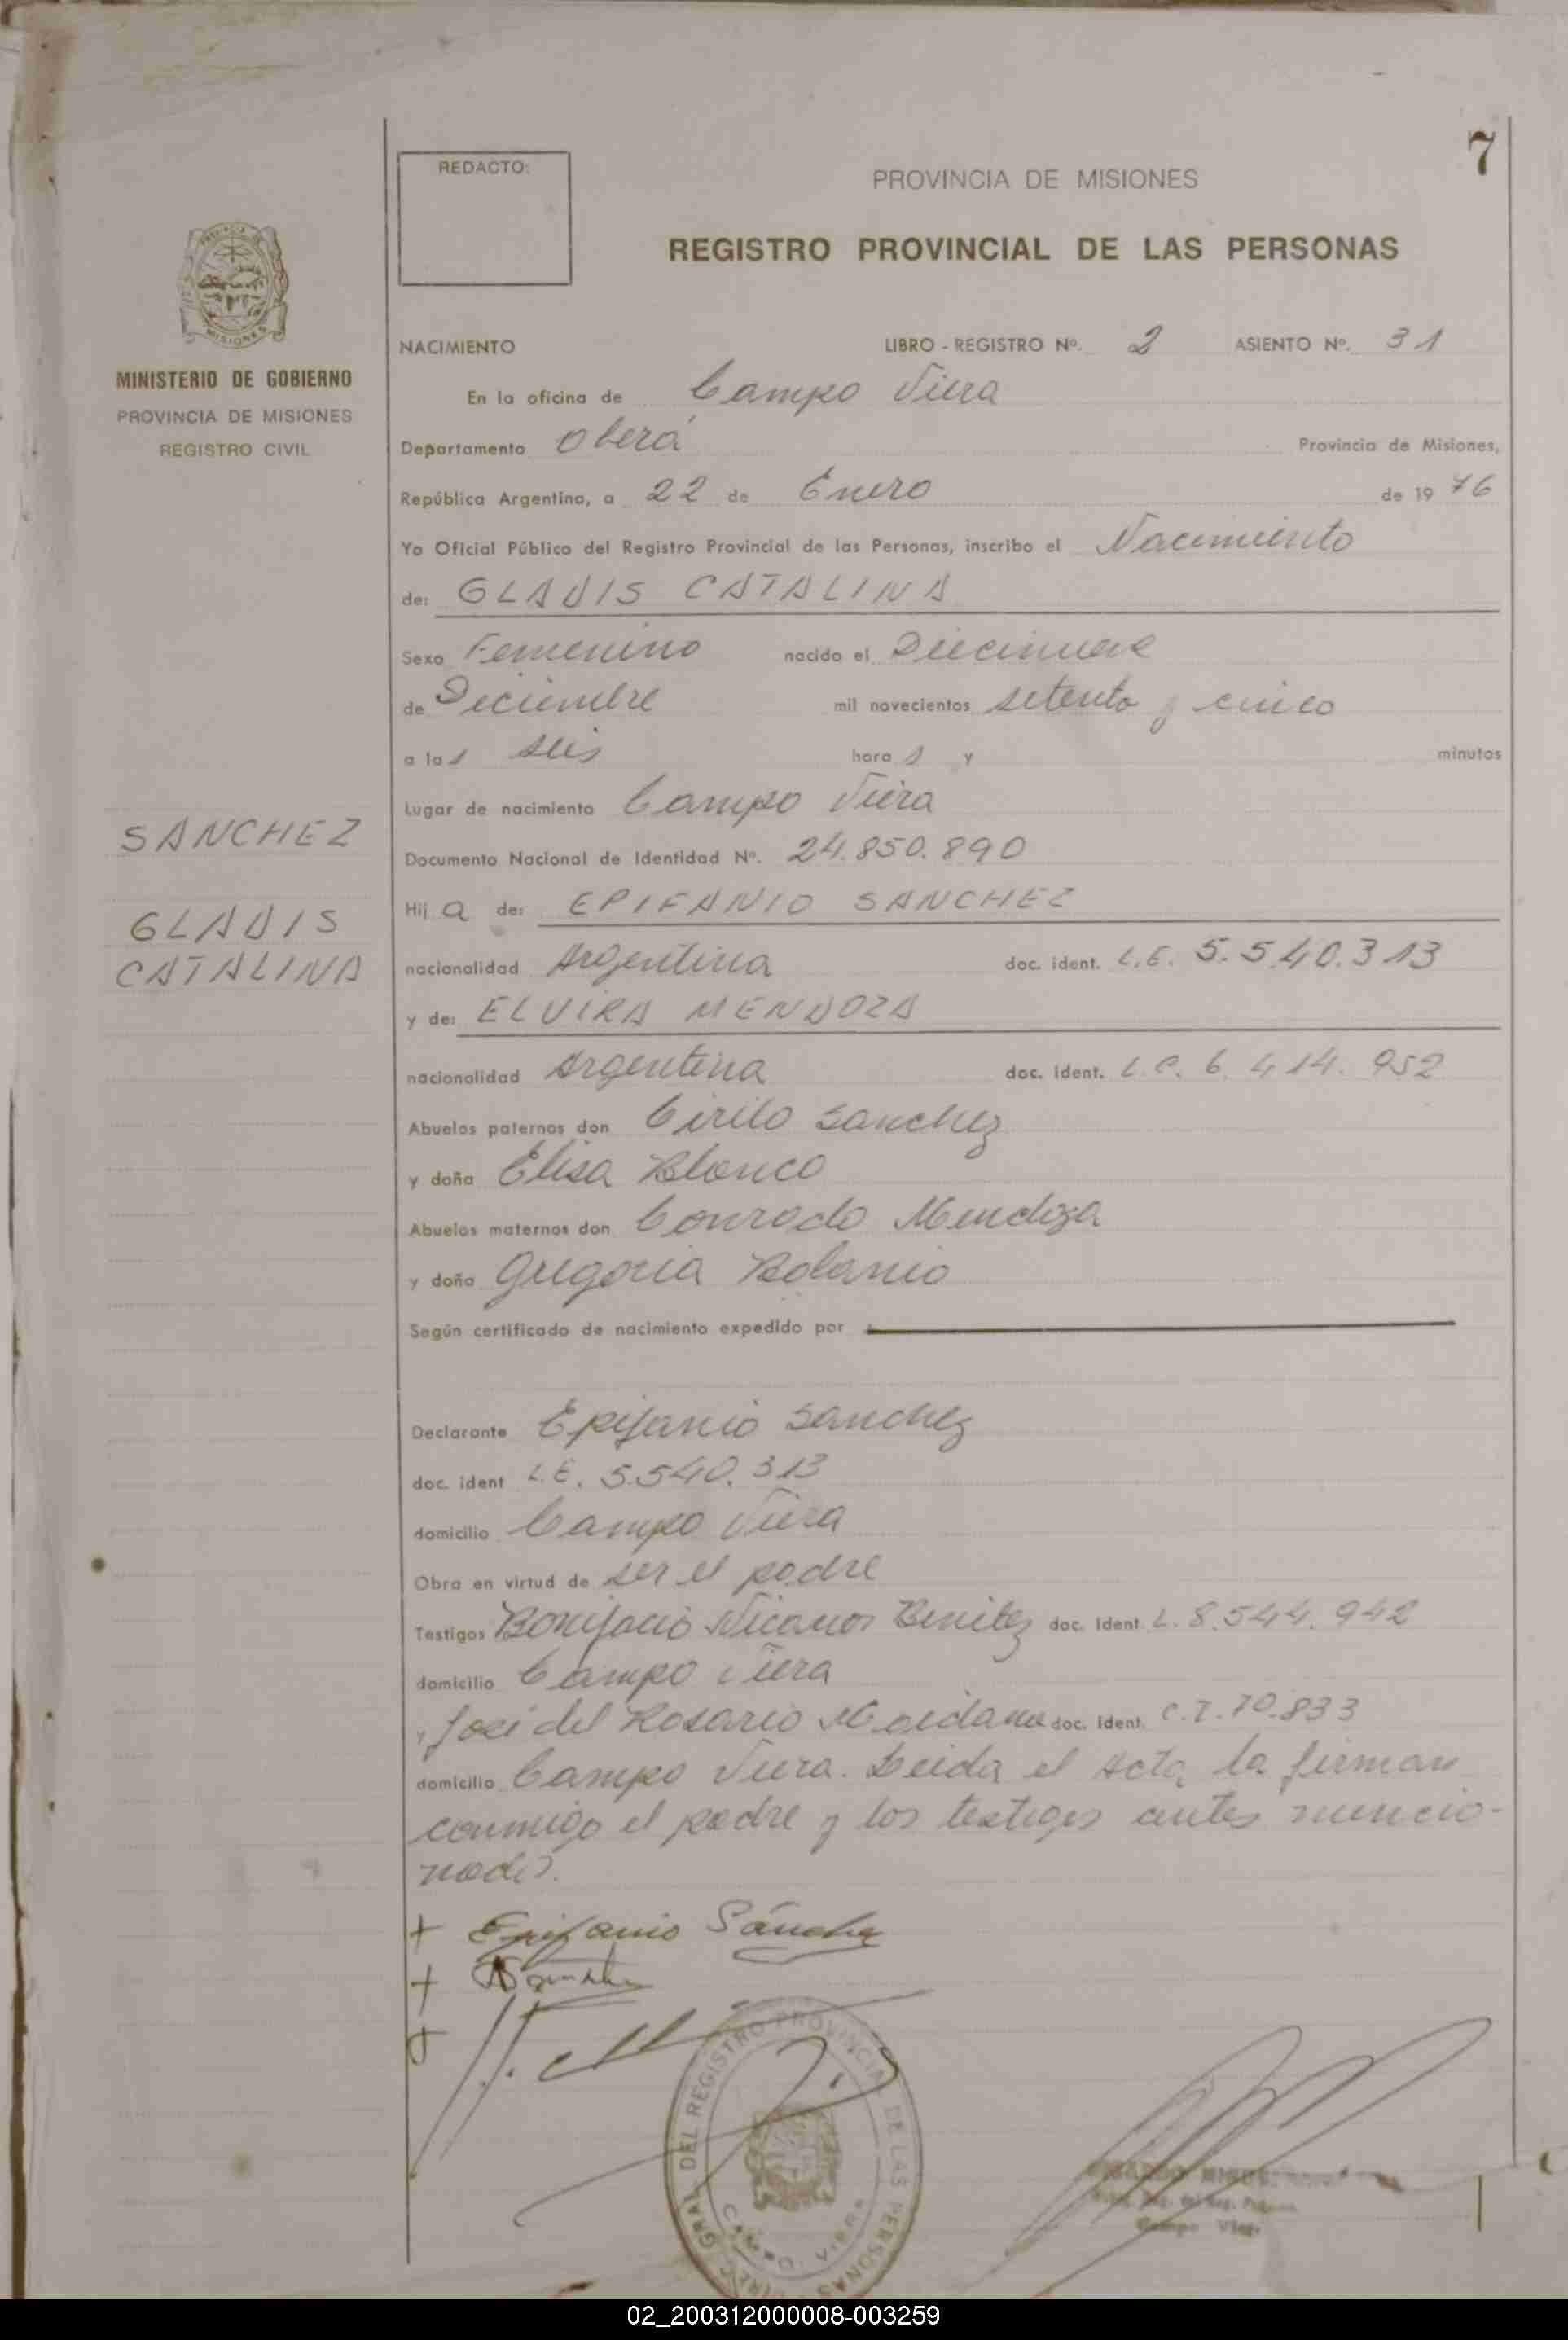 7
REDACTO:
PROVINCIA DE MISIONES
REGISTRO PROVINCIAL DE LAS PERSONAS
MISIONES
MINISTERIO DE GOBIERNO
PROVINCIA DE MISIONES
REGISTRO CIVIL
SANCHEZ
GLADIS
CATALINA
NACIMIENTO LIBRO - REGISTRO Nº. 2 ASIENTO Nº. 31
En la oficina de Campo Viera
Departamento Oberá Provincia de Misiones,
República Argentina, a 22 de Enero de 19 76
Yo Oficial Público del Registro Provincial de las Personas, inscribo el Nacimiento
de: GLADIS CATALINA
Sexo Femenino nacido el Diecinueve
de Diciembre mil novecientos setenta y cinco
a las seis hora s y minutos
Lugar de nacimiento Campo Viera
Documento Nacional de Identidad Nº. 24.850.890
Hij a de: EPIFANIO SANCHEZ
nacionalidad Argentina doc. ident. L.E. 5.540.313
y de: ELVIRA MENDOZA
nacionalidad Argentina doc. ident. L.C. 6.414.952
Abuelos paternos don Cirilo Sanchez
y doña Elisa Blanco
Abuelos maternos don Conrado Mendoza
y doña Gregoria Bolanio
Según certificado de nacimiento expedido por
Declarante Epifanio Sanchez
doc. ident L.E. 5.540.313
domicilio Campo Viera
Obra en virtud de ser el padre
Testigos Bonifacio Nicanor Benitez doc. ident L. 8.544.942
domicilio Campo Viera
y José del Rosario Maidana doc. ident. C.I. 70.833
domicilio Campo Viera. Leida el acta, la firman
conmigo el padre y los testigos antes mencio-
nados.
Epifanio Sánchez
DEL REGISTRO PROVINCIAL DE LAS PERSONAS
Campo Viera
02_200312000008-003259